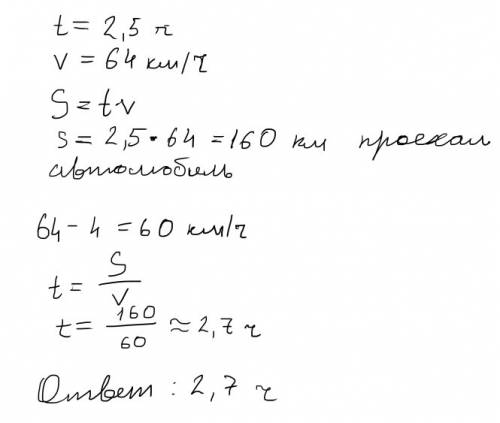 t = 2,5 ч
v = 64 км/ч
S = t·v
s = 2,5 · 64 = 160 км проехал
автомобиль
64 - 4 = 60 км/ч
t = S/V
t = 160/60 ≈ 2,7 ч
Ответ : 2,7 ч